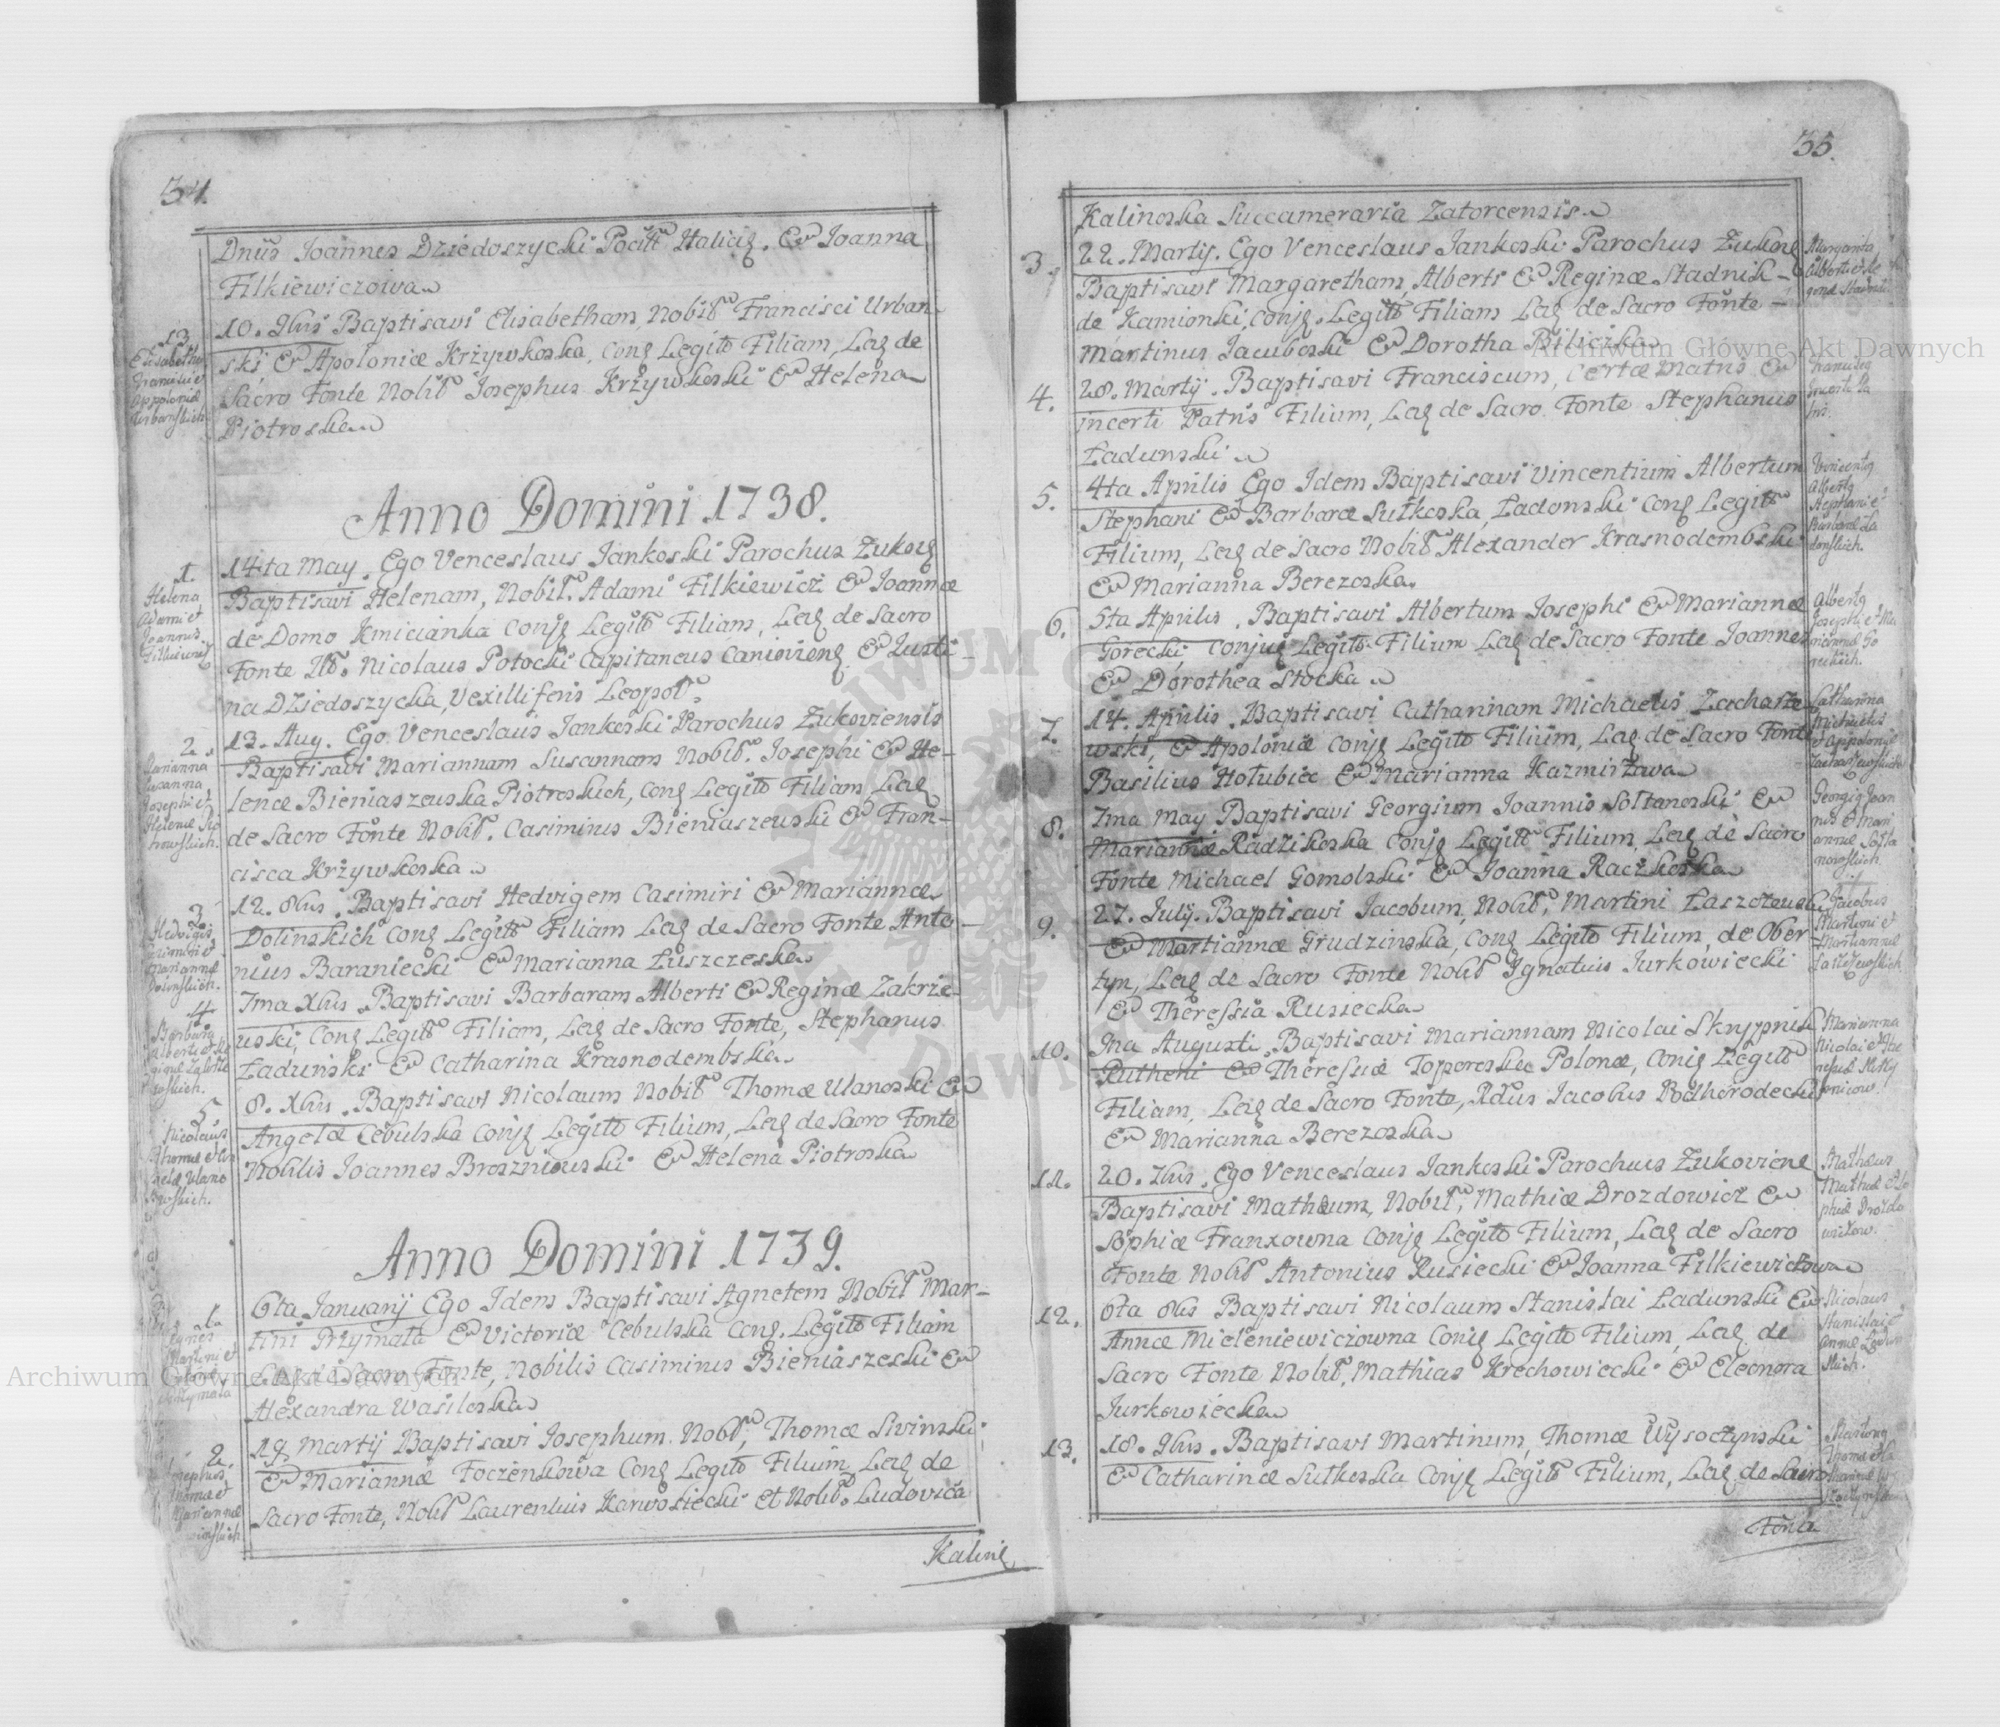 34.
Dnus Joannes Dziedoszycki Pocill Halicię. Et Joanna
Filkiewiczowa
13.
Elisabetha
Francisci et
Appoloniæ
Urbanskich
10. 9bris Baptisavi Elisabetham, Nobil Francisci Urban
ski Et Apoloniæ Krzywkoska, Conj Legitt Filiam, Lag de
Sacro Fonte Nobil Josephus Krzywkoski Et Helena
Piotroska
Anno Domini 1738.
1.
Helena
Adami et
Joannæ
14ta May. Ego Venceslaus Jankoski Parochus Zukow
Baptisavi Helenam, Nobil. Adami Filkiewicz Et Joannæ
de Domo Kmicianka Conj Legitt Filiam, Lag de Sacro
Fonte Ill. Nicolaus Potocki Capitaneus Canioviens Et Justi-
na Dziedoszycka, Vexilliferis Leopol.
2.
Marianna
Susanna
Josephi et
Helenæ
13. Aug. Ego Venceslaus Jankoski Parochus Zukoviensis
Baptisavi Mariannam Susannam Nobil. Josephi Et He-
lenæ Bieniaszeuska Piotroskich, Conj Legitt Filiam, Lag
de Sacro Fonte Nobil. Casimirus Bieniaszeuski Et Fran-
cisca Krzywkoska
3.
Hedvigis
Casimiri et
Mariannæ
Dolinskich.
12. 8bris. Baptisavi Hedvigem Casimiri Et Mariannæ
Dolinskich Conj Legitt Filiam Lag de Sacro Fonte Anto-
nius Baraniecki Et Marianna Łuszczeska
4
Barbara
Alberti et Re
ginæ
7ma Xbris. Baptisavi Barbaram Alberti Et Reginæ Zakrze-
uski, Conj Legitt Filiam, Lag de Sacro Fonte, Stephanus
Ładunski Et Catharina Krasnodembska
5
Nicolaus
Thomæ et An
gelæ Ulano
wskich.
8. Xbris. Baptisavi Nicolaum Nobil Thomæ Ulanoski Et
Angelæ Cebulska Conj Legitt Filium, Lag de Sacro Fonte
Nobilis Joannes Broszniouski Et Helena Piotroska
Anno Domini 1739.
1.
Agnes
Martini et
6ta Januarij Ego Idem Baptisavi Agnetem Nobil Mar-
tini Przymała Et Victoriæ Cebulska Conj. Legitt Filiam
Lag de Sacro Fonte, Nobilis Casimirus Bieniaszeski Et
Alexandra Wasiloska
2.
Josephus
Thomæ et
Mariannæ
19. Martij Baptisavi Josephum Nobil, Thomæ Sivinski
Et Mariannæ Toczenkowa Conj Legitt Filium Lag de
Sacro Fonte, Nobil Laurentius Karwosiecki et Nobil. Ludovica
Kalinę
35.
Kalinoska Succameraria Zatorcensis
3.
22. Martij. Ego Venceslaus Jankoski Parochus Zukow
Baptisavi Margaretham, Alberti Et Reginæ Stadnik-
de Kamionki, Conj. Legitt Filiam Lag de Sacro Fonte-
Martinus Jacuboski Et Dorotha Biliczka
Margarita
Alberti et Re
ginæ
4.
28. Martij. Baptisavi Franciscum, Certæ Matris Et
incerti Patris Filium, Lag de Sacro Fonte Stephanus
Ładunski
Franciscq
Incerti Pa
tris.
5.
4ta Aprilis Ego Idem Baptisavi Vincentium Albertum
Stephani Et Barbaræ Sutkoska, Ładonski Conj Legitt
Filium, Lag de Sacro Nobil Alexander Krasnodembski
Et Marianna Berezoska
Vincentq
Albertq
Stephani et
Barbaræ Ła
donskich.
6.
5ta Aprilis, Baptisavi Albertum Josephi Et Mariannæ
Gorecki Conjug Legitt Filium Lag de Sacro Fonte Joannes
Et Dorothea Stocka
Albertq
Josephi et Ma
riannæ Go
reckich.
7.
14. Aprilis. Baptisavi Catharinam Michaelis Zacharie
wski, Et Apoloniæ Conj Legitt Filium, Lag de Sacro Fonte
Basilius Hołubiec Et Marianna Kazmirzowa
Catharina
Michaelis
et Appoloniæ
8.
7ma May Baptisavi Georgium Joannis Sołtanoski Et
Mariannæ Radzikoska Conj Legitt Filium, Lag de Sacro
Fonte Michael Gomolski Et Joanna Raczkoska
Georgiq Joan
nis et Mari
annæ Sołta
nowskich
9.
27. Julij. Baptisavi Jacobum, Nobil, Martini Łaszczeuski
Et Martiannæ Grudzinska, Conj Legitt Filium, de Ober
tyn, Lag de Sacro Fonte Nobil Ignatius Jurkowiecki
Et Theressia Rusiecka
Jacobus
Martini et
Martiannæ
10.
9na Augusti. Baptisavi Mariannam Nicolai Skrypnik
Rutheni Et Theresiæ Toporeskæ Polonæ, Conj Legitt
Filiam, Lag de Sacro Fonte, Rdus Jacobus Podhorodecki
Et Marianna Berezoska
Marianna
Nicolai et The
resiæ Skry
pnikow
11.
20. 7bris. Ego Venceslaus Jankoski Parochus Zukoviene
Baptisavi Mathæum, Nobil, Mathiæ Drozdowicz Et
Sophiæ Franxowna Conj Legitt Filium, Lag de Sacro
Fonte Nobil Antonius Rusiecki Et Joanna Filkiewiczowa
Mathæus
Mathiæ et So
phiæ Drozdo
wiczow.
12.
6ta 8bris Baptisavi Nicolaum Stanislai Ładunski Et
Annæ Mieleniewiczowna Conj Legitt Filium, Lag de
Sacro Fonte Nobil, Mathias Krechowiecki Et Eleonora
Jurkowiecka
Nicolaus
Stanislai et
Annæ Ładun
skich.
13.
18. 9bris. Baptisavi Martinum, Thomæ Wysoczynski
Et Catharinæ Sutkoska Conj Legitt Filium, Lag de Sacro
Martinq
Thomæ et Ca
tharinæ Wy
Fonte
Archiwum Główne Akt Dawnych
Archiwum Główne Akt Dawnych